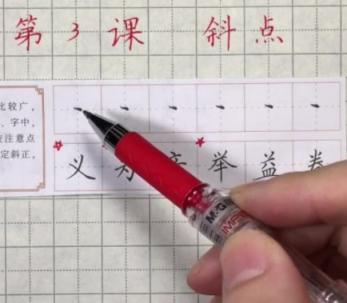 第3课 斜点
比较广，
、字中，
注意点
定斜正，
义 举 益 券
M&G